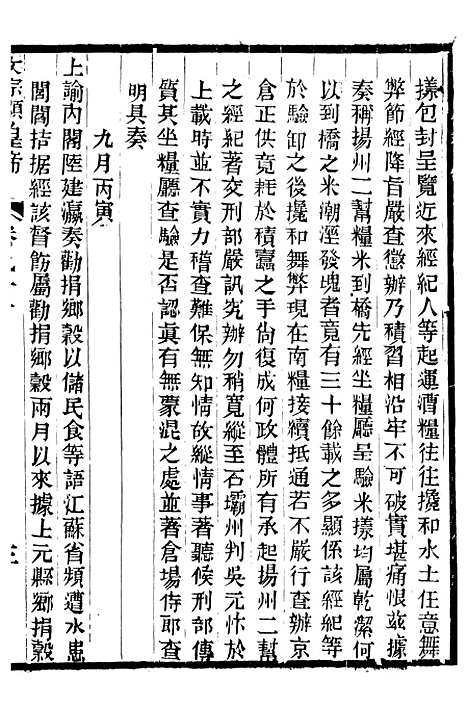 㨾包封呈覽近來經紀人等起運漕糧往往攙和水土任意舞
弊節經降旨嚴查懲辦乃積習相沿牢不可破實堪痛恨茲據
奏稱揚州二幫糧米到橋先經坐糧廳呈驗米㨾均屬乾潔何
以到橋之米潮溼發塊者竟有三十餘載之多顯係該經紀等
於驗卸之後攙和舞弊現在南糧接續抵通若不嚴行查辦京
倉正供竟耗於積蠹之手尚復成何政體所有承起揚州二幫
之經紀著交刑部嚴訊究辦勿稍寬縱至石壩州判吳元忻於
上載時並不實力稽查難保無知情故縱情事著聽候刑部傳
質其坐糧廳查驗是否認眞有無蒙混之處並著倉場侍郎查
明具奏
九月丙寅
上諭內閣陸建瀛奏勸捐鄉穀以儲民食等語江蘇省頻遭水患
閭閻拮据經該督飭屬勸捐鄉穀兩月以來據上元縣鄉捐穀
文宗顯皇帝
三